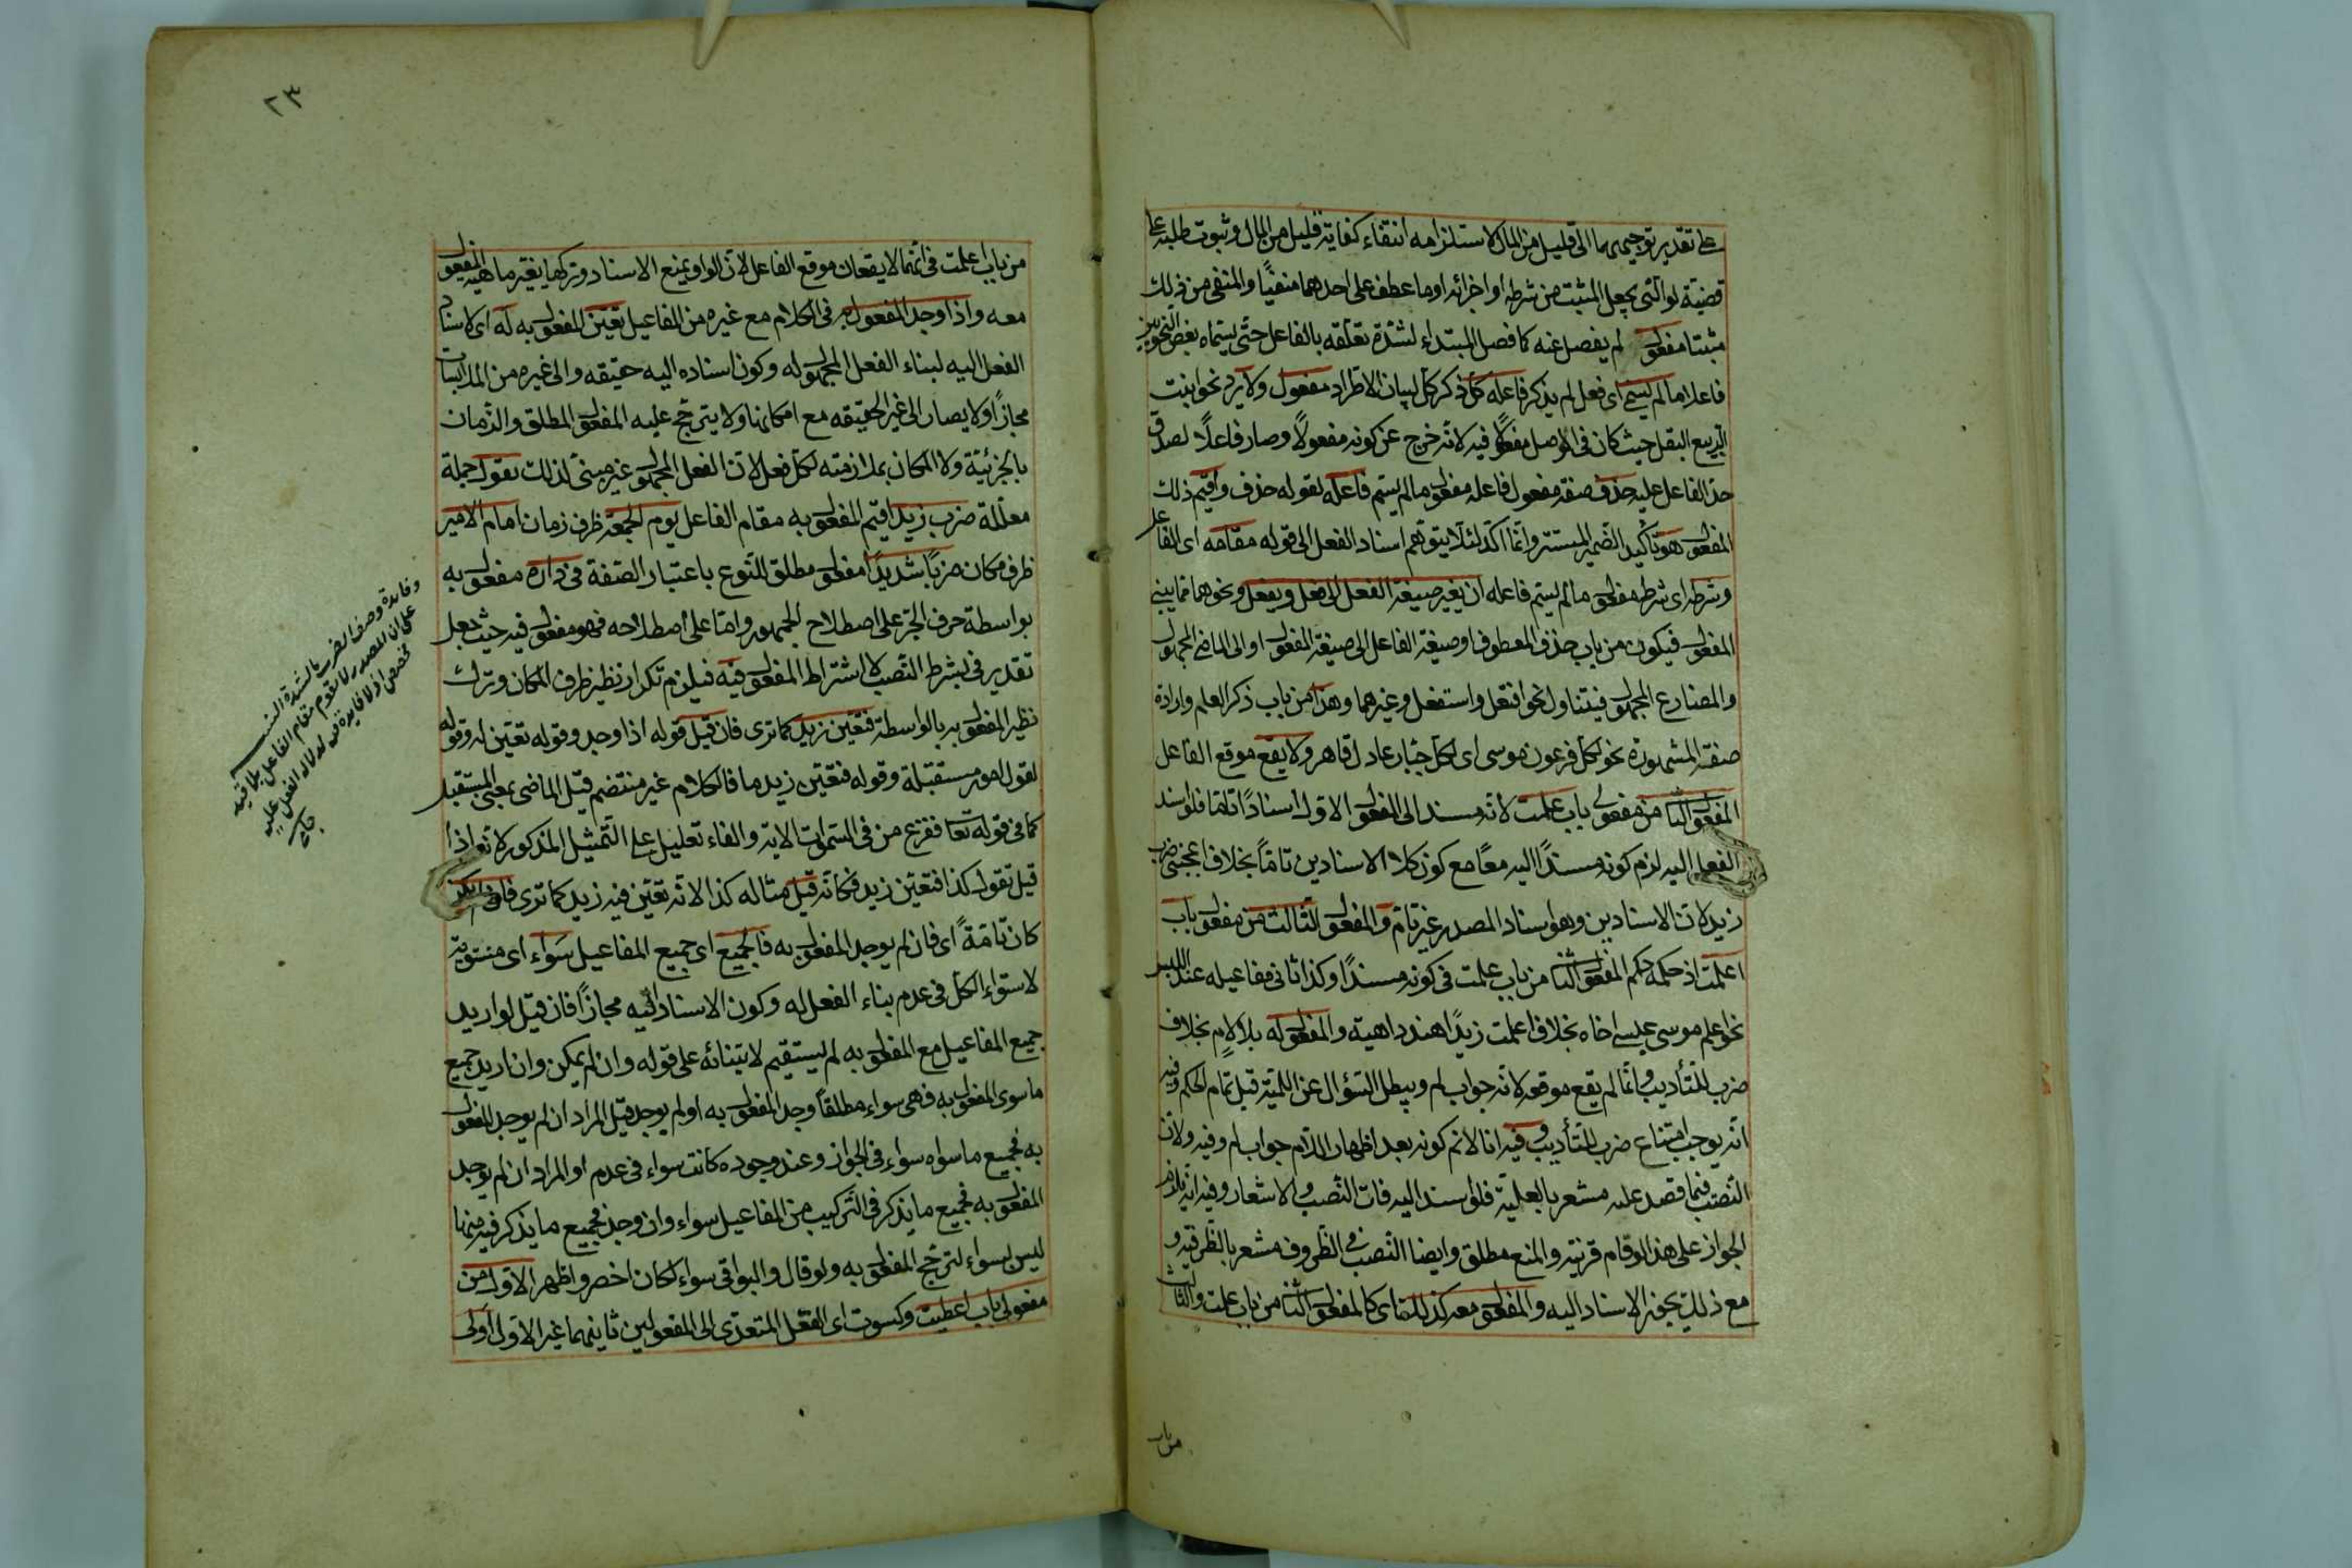 على تقدير توجيههما الى قليل من المال لاستلزامه انتفاء كفاية قليل من المال وثبوت طلبه على
قضية لو التى يجعل المثبت من شرطه او اجزائه او ما عطف على احدهما منفيًا والمنفى من ذلك
مثبتا مفعول لم يفصل عنه كما فصل المبتداء لشدّة تعلّقه بالفاعل حتّى يسمّاه بعض النحويين
فاعلا ما لم يسمّ اى فعل لم يذكر فاعله كل ذكر كل لبيان الاطّراد مفعول ولا يرد نحو انبت
الربيع البقل حيث كان فى الاصل مفعولًا فيه لانّه خرج عن كونه مفعولًا وصار فاعلًا لصدق
حدّ الفاعل عليه حذف صفة مفعول فاعله مفعول ما لم يسّم فاعله لقوله حذف واقيم ذلك
المفعول هو تأكيد الضمير المستتر وانّما اكّد لئلّا يتوهّم اسناد الفعل الى قوله مقامه اى الفاعل
وشرطه اى شرط مفعول ما لم يسّم فاعله ان يغير صيغة الفعل الى فعل ويفعل ونحوهما مما يبنى
المفعول فيكون من باب حذف المعطوف او صيغة الفاعل الى صيغة المفعول او الى الماضى المجهول
والمضارع المجهول فيتناول نحو افتعل واستفعل وغيرهما وهذا من باب ذكر العلم وارادة
صفته المشهورة نحو لكل فرعون موسى اى لكل جبّار عادل قاهر ولا يقع موقع الفاعل
المفعول الثانى من مفعولى باب علمت لانّه مسند الى المفعول الاوّل اسنادًا تامّا فلو اسند
الفعل اليه لزم كونه مسندًا اليه معًا مع كون كلا الاسنادين تامّا بخلاف اعجبنى ضرب
زيد لان الاسنادين وهو اسناد المصدر غير تامّ والمفعول الثالث من مفعول باب
اعلمت اذ حكمه حكم المفعول الثانى من باب علمت فى كونه مسندًا وكذا ثانى مفاعيله عند اللبس
نحو اعلم موسى عيسى اخاه بخلاف اعلمت زيدًا هند داهية والمفعول له بلا لام بخلاف
ضرب للتأديب وانّما لم يقع موقعه لانّه جواب لم ويبطل السّؤال عن اللميّة قبل تمام الحكم وفيه
انّه يوجب امتناع ضرب للتأديب وفيه انا لا نم كونه بعد اظهار اللام جواب لم وفيه ولان
النّصب فيما قصد عليه مشعر بالعلّية فلو اسند اليه فات النّصب والاشعار وفيه انّه يلزم
الجواز على هذا لو قام قرينة والمنع مطلق وايضا النّصب فى الظّروف مشعر بالظّرفيّة و
مع ذلك يجوز الاسناد اليه والمفعول معه كذلك اى كالمفعول الثانى من باب علمت والثالث
من باب
٢٣
من باب اعلمت فى انّهما لا يقعان موقع الفاعل لانّ الواو يمنع الاسناد وتركها يغيّر ماهية المفعول
معه واذا وجد المفعول به فى الكلام مع غيره من المفاعيل تعيّن المفعول به له اى لاسناد
الفعل اليه لبناء الفعل المجهول له وكون اسناده اليه حقيقه والى غيره من الملابسات
مجازًا ولا يصار الى غير الحقيقه مع امكانها ولا يترجّح عليه المفعول المطلق والزّمان
بالجزئيّة ولا المكان بملازمته لكل فعل لانّ الفعل المجهول غير مبنىّ لذلك تقول جملة
معلّلة ضرب زيد اقيم المفعول به مقام الفاعل يوم الجمعة ظرف زمان امام الامير
ظرف مكان ضربًا شديدًا مفعول مطلق للنّوع باعتبار الصّفة فى داره مفعول به
بواسطة حرف الجرّ على اصطلاح الجمهور وامّا على اصطلاحه فهو مفعول فيه حيث جعل
تقدير فى شرط النّصب لا اشتراط المفعول فيه فيلزم تكرار نظير ظرف المكان وترك
نظير المفعول به بالواسطة فتعيّن زيد كما ترى فان قيل قوله اذا وجد وقوله تعيّن له وقوله
تقول امور مستقبلة وقوله فتعيّن زيد ماض فالكلام غير منتضم قيل الماضى بمعنى المستقبل
كما فى قوله تعا ففزع من فى السّموات الاية والفاء تعليل على التّمثيل المذكور لانّه اذا
قيل تقول كذا فتعيّن زيد فكانّه قيل مثاله كذا لانّه تعيّن فيه زيد كما ترى فان لم يكن
كان تامّةً اى فان لم يوجد المفعول به فالجميع اى جميع المفاعيل سواء اى مستوية
لاستواء الكل فى عدم بناء الفعل له وكون الاسناد اليه مجازًا فان قيل لو اريد
جميع المفاعيل مع المفعول به لم يستقيم لابتنائه على قوله وان لم يكن وان اريد جميع
ما سوى المفعول به فهى سواء مطلقًا وجد المفعول به او لم يوجد قيل المراد ان لم يوجد المفعول
به فجميع ما سواه سواء فى الجواز وعند وجوده كانت سواء فى عدم او المراد ان لم يوجد
المفعول به فجميع ما يذكر فى التّركيب من المفاعيل سواء وان وجد فجميع ما يذكر فيه منها
ليس بسواء لترجّح المفعول به ولو قال والبواقى سواء لكان اخصر واظهر الاوّل من
مفعولى باب اعطيت وكسوت اى الفعل المتعدّى الى المفعولين ثانيهما غير الاوّل اولى
وفايدة وصف الضرب بالشدّة التنبيه
على ان المصدر لا يقوم مقام الفاعل بلا قيد
مخصص اذ لا فايدة فيه لدلالة الفعل عليه
جامى